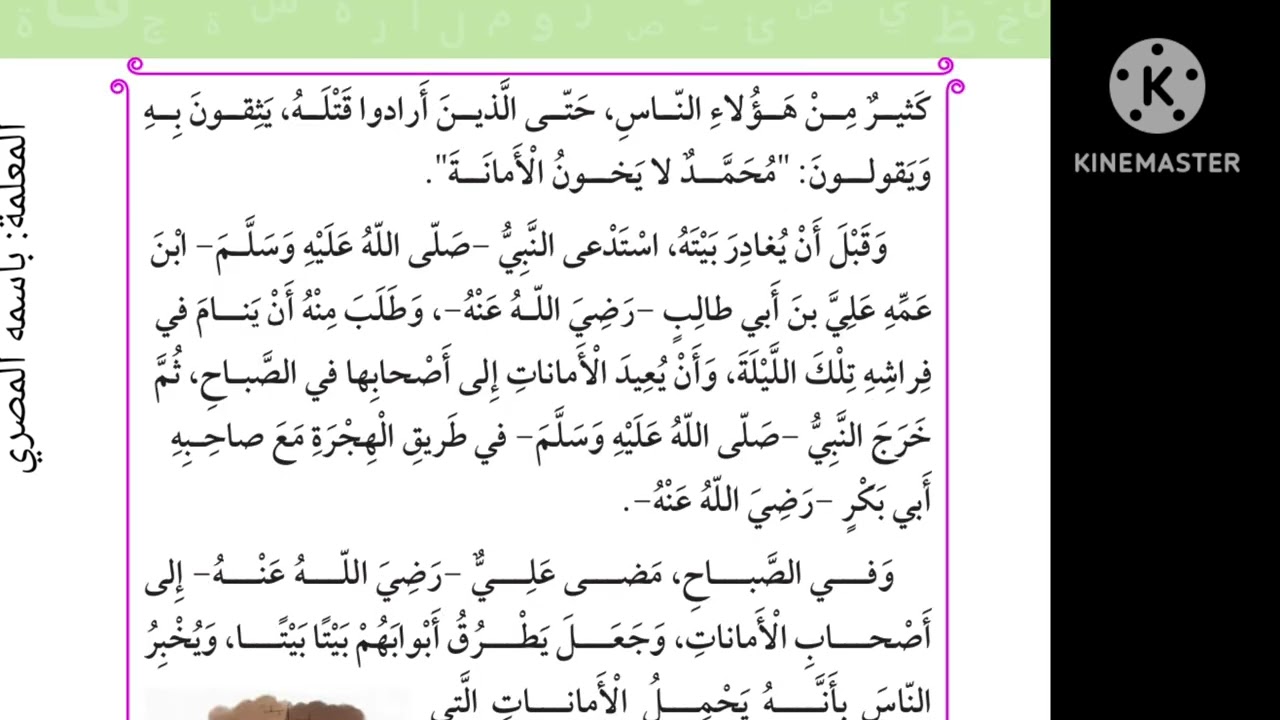 كَثيرٌ مِنْ هَؤُلاءِ النّاسِ، حَتّى الَّذينَ أَرادوا قَتْلَهُ، يَثِقونَ بِهِ
وَيَقولونَ: "مُحَمَّدٌ لا يَخونُ الْأَمانَةَ".
وَقَبْلَ أَنْ يُغادِرَ بَيْتَهُ، اسْتَدْعى النَّبِيُّ –صَلّى اللّهُ عَلَيْهِ وَسَلَّمَ– ابْنَ
عَمِّهِ عَلِيَّ بنَ أَبي طالِبٍ –رَضِيَ اللّهُ عَنْهُ–، وَطَلَبَ مِنْهُ أَنْ يَنامَ في
فِراشِهِ تِلْكَ اللَّيْلَةَ، وَأَنْ يُعِيدَ الْأَماناتِ إِلى أَصْحابِها في الصَّباحِ، ثُمَّ
خَرَجَ النَّبِيُّ –صَلّى اللّهُ عَلَيْهِ وَسَلَّمَ– في طَريقِ الْهِجْرَةِ مَعَ صاحِبِهِ
أَبي بَكْرٍ –رَضِيَ اللّهُ عَنْهُ–.
وَفي الصَّباحِ، مَضى عَلِيٌّ –رَضِيَ اللّهُ عَنْهُ– إِلى
أَصْحابِ الْأَماناتِ، وَجَعَلَ يَطْرُقُ أَبْوابَهُمْ بَيْتًا بَيْتًا، وَيُخْبِرُ
النّاسَ بِأَنَّهُ يَحْمِلُ الْأَماناتِ الَّتي
المعلمة: باسمه المصري
KINEMASTER